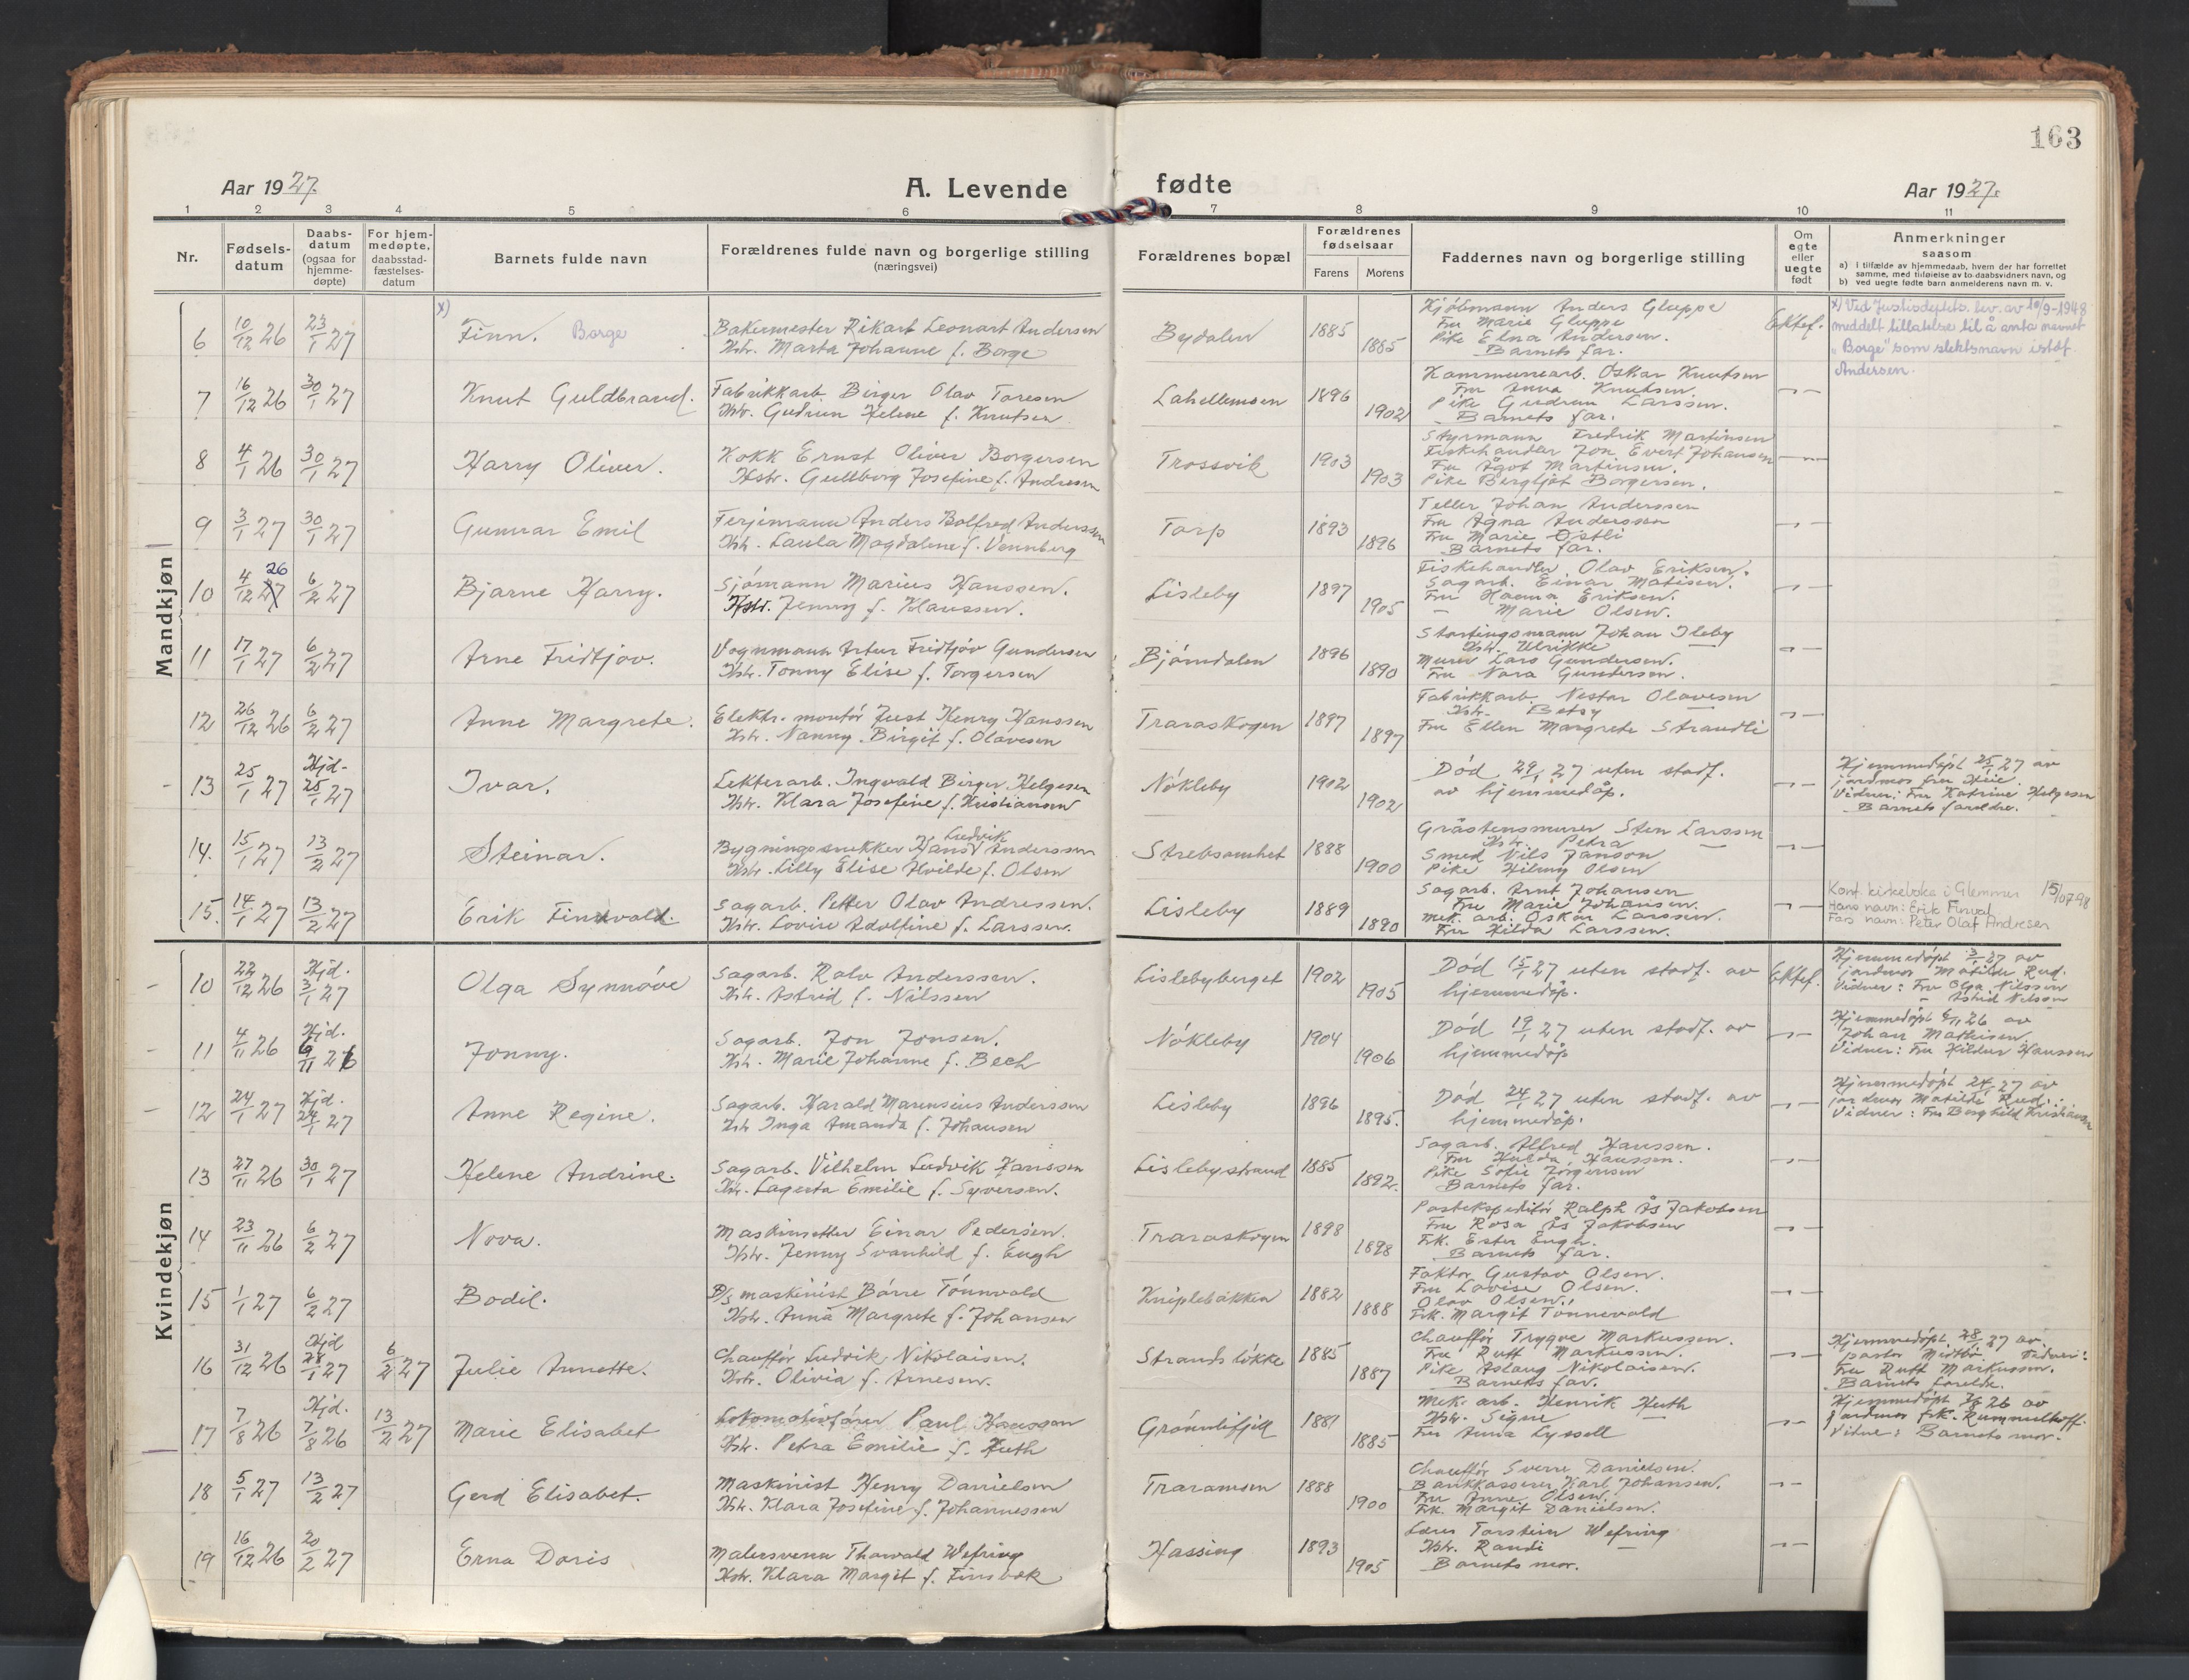 163
Aar 1927.
A. Levende fødte
Aar 1927.
1 2 3 4 5 6 7 8 9 10 11
Nr.
Fødsels-
datum
Daabs-
datum
(ogsaa for
hjemme-
døpte)
For hjem-
medøpte,
daabsstad-
fæstelses-
datum
Barnets fulde navn
Forældrenes fulde navn og borgerlige stilling
(næringsvei)
Forældrenes bopæl
Forældrenes
fødselsaar
Farens Morens
Faddernes navn og borgerlige stilling
Om
egte
eller
uegte
født
Anmerkninger
saasom
a) i tilfælde av hjemmedaab, hvem der har forrettet
samme, med tilføielse av to daabsvidners navn, og
b) ved uegte fødte barn anmelderens navn m. v.
Mandkjøn
6 10/12 26 23/1 27 x) Finn. Borge
Bakermester Rikart Leonart Andersen
Hstr. Marta Johanne f. Borge
Bydalen 1885 1885
Kjøbmann Anders Gluppe
Fru Marie Gluppe
Pike Elna Andersen.
Barnets far.
Ektef.
x) Ved Justisdepts. brev. av 10/9-1948
meddelt tillatelse til å anta navnet
"Borge" som slektsnavn istdf.
Andersen.
7 16/12 26 30/1 27 Knut Guldbrand.
Fabrikkarb. Birger Olav Toresen
Hstr. Gudrun Helene f. Knutsen
Lahellemoen 1896 1902
Kommunearb. Oskar Knutsen
Fru Anna Knutsen.
Pike Gudrun Larssen.
Barnets far.
8 4/1 26 30/1 27 Harry Oliver.
Kokk Ernst Oliver Borgersen
Hstr. Gullborg Josefine f. Andresen
Trossvik 1903 1903
Styrmann Fredrik Martinsen
Fiskehandler Jon Evert Johansen
Fru Ågot Martinsen.
Pike Bergljot Borgersen.
9 3/1 27 30/1 27 Gunnar Emil
Ferjemann Anders Bolfred Anderssen
Hstr. Laula Magdalene f. Vennberg
Torp 1893 1896
Teller Johan Anderssen
Fru Agna Anderssen
Fru Marie Østli
Barnets far.
10 4/12 27 26 6/2 27 Bjarne Harry.
Sjømann Marius Hanssen.
Hstr. Jenny f. Klaussen.
Lisleby 1897 1905
Fiskehandler Olav Eriksen.
Sagarb. Einar Matisen.
Fru Hanna Eriksen.
– Marie Olsen.
11 17/1 27 6/2 27 Arne Fridtjov.
Vognmann Artur Fridtjov Gundersen
Hstr. Tonny Elise f. Torgersen
Bjørndalen 1896 1890
Stortingsmann Johan Ileby
Hstr. Ulrikke —
Murer Lars Gundersen.
Fru Nora Gundersen.
12 26/12 26 6/2 27 Anne Margrete.
Elektr. montør Just Henry Hanssen
Hstr. Nanny Birgit f. Olavesen
Traraskogen 1897 1897
Fabrikkarb. Nestor Olavesen
Hstr. Betsy —
Fru Ellen Margrete Strandli
13 25/1 27 Hjd. 25/1 27 Ivar.
Lekterarb. Ingvald Birger Helgesen
Hstr. Klara Josefine f. Kristiansen
Nøkleby 1902 1902
Død 29/1 27 uten stadf.
av hjemmedåp.
Hjemmedøpt 25/1 27 av
jordmor fru Heie.
Vidner: Fru Katrine Helgesen
Barnets foreldre.
14. 15/1 27 13/2 27 Steinar.
Bygningssnekker Hans Ludvik Anderssen
Hstr. Lilly Elise Hvilde f. Olsen
Strebsomhet 1888 1900
Gråstensmurer Sten Larssen
Hstr. Petra —
Smed Nils Janson
Pike Hilmy Olsen
15. 14/1 27 13/2 27 Erik Finnvald.
Sagarb. Petter Olav Andressen.
Hstr. Lovise Adolfine f. Larssen.
Lisleby 1889 1890
Sagarb. Arnt Johansen
Fru Marie Johansen.
Mek. arb. Oskar Larssen.
Fru Hilda Larssen.
Konf. kirkeboka i Glemmen 15/07-98
Hans navn: Erik Finval
Fars navn: Peter Olaf Andresen
Kvindekjøn
10 22/12 26 Hjd. 3/1 27 Olga Synnøve
Sagarb. Rolv Anderssen.
Hstr. Astrid f. Nilssen
Lislebyberget 1902 1905
Død 15/1 27 uten stadf. av
hjemmedåp.
Ektef.
Hjemmedøpt 3/1 27 av
jordmor Matilde Rud.
Vidner: Fru Olga Nilssen
– Astrid Nilssen
11 4/11 26 Hjd. 6/11 26 Jonny.
Sagarb. Jon Jonsen.
Hstr. Marie Johanne f. Bech
Nøkleby 1904 1906
Død 19/1 27 uten stadf. av
hjemmedåp
Hjemmedøpt 6/11 26 av
Johan Mathisen.
Vidner: Fru Hildur Hanssen
12 24/1 27 Hjd. 24/1 27 Anne Regine.
Sagarb. Harald Marensius Anderssen
Hstr. Inga Amanda f. Johansen
Lisleby 1896 1895.
Død 24/1 27 uten stadf. av
hjemmedåp.
Hjemmedøpt 24/1 27 av
jordmor Matilde Rud.
Vidner: Fru Borghild Kristiansen
13 27/11 26 30/1 27 Helene Andrine.
Sagarb. Vilhelm Ludvik Hanssen
Hstr. Lagerta Emilie f. Syversen.
Lislebystrand 1885 1892.
Sagarb. Alfred Hanssen.
Fru Hulda Hanssen.
Pike Sofie Jørgensen
Barnets far.
14 23/11 26 6/2 27 Nova.
Maskinsetter Einar Pedersen.
Hstr. Jenny Svanhild f. Engh
Traraskogen 1898 1898
Postekspeditør Ralph Ås Jakobsen
Fru Rosa Ås Jakobsen
Frk. Ester Engh.
Barnets far.
15 1/1 27 6/2 27 Bodil.
D/s maskinist Børre Tønnvald
Hstr. Anna Margrete f. Johansen
Kniplebakken 1882 1888
Faktor Gustav Olsen.
Fru Lovise Olsen.
Olav Olsen.
Frk. Margit Tønnevald
16 31/12 26 Hjd 28/1 27 6/2 27 Julie Annette.
Chauffør Ludvik Nikolaisen.
Hstr. Olivia f. Arnesen.
Strandsløkke 1885 1887
Chauffør Trygve Markussen.
Fru Rutt Markussen.
Pike Aslaug Nikolaisen.
Barnets far.
Hjemmedøpt 28/1 27 av
pastor Midtbø. Vidner:
Fru Rutt Markussen.
Barnets foreldre.
17 7/8 26 Hjd. 7/8 26 13/2 27 Marie Elisabet
Lokomotivfører Paul Hansson
Hstr. Petra Emilie f. Huth
Grønnlifjell 1881 1885
Mek. arb. Henrik Huth
Hstr. Signe —
Fru Anna Lysell
Hjemmedøpt 7/8 26 av
jordmor frk. Rummelhoff.
Vitne: Barnets mor.
18 5/1 27 13/2 27 Gerd Elisabet.
Maskinist Henry Danielsen
Hstr. Klara Josefine f. Johannessen
Traramoen 1888 1900
Chauffør Sverre Danielsen.
Bankkasserer Karl Johansen.
Fru Anne Olsen.
Frk. Margit Danielsen.
19 16/12 26 20/2 27 Erna Doris
Malersvenn Thorvald Wefring
Hstr. Klara Margit f. Finsbek
Hassing 1893 1905
Lærer Torstein Wefring
Hstr. Randi —
Barnets mor.